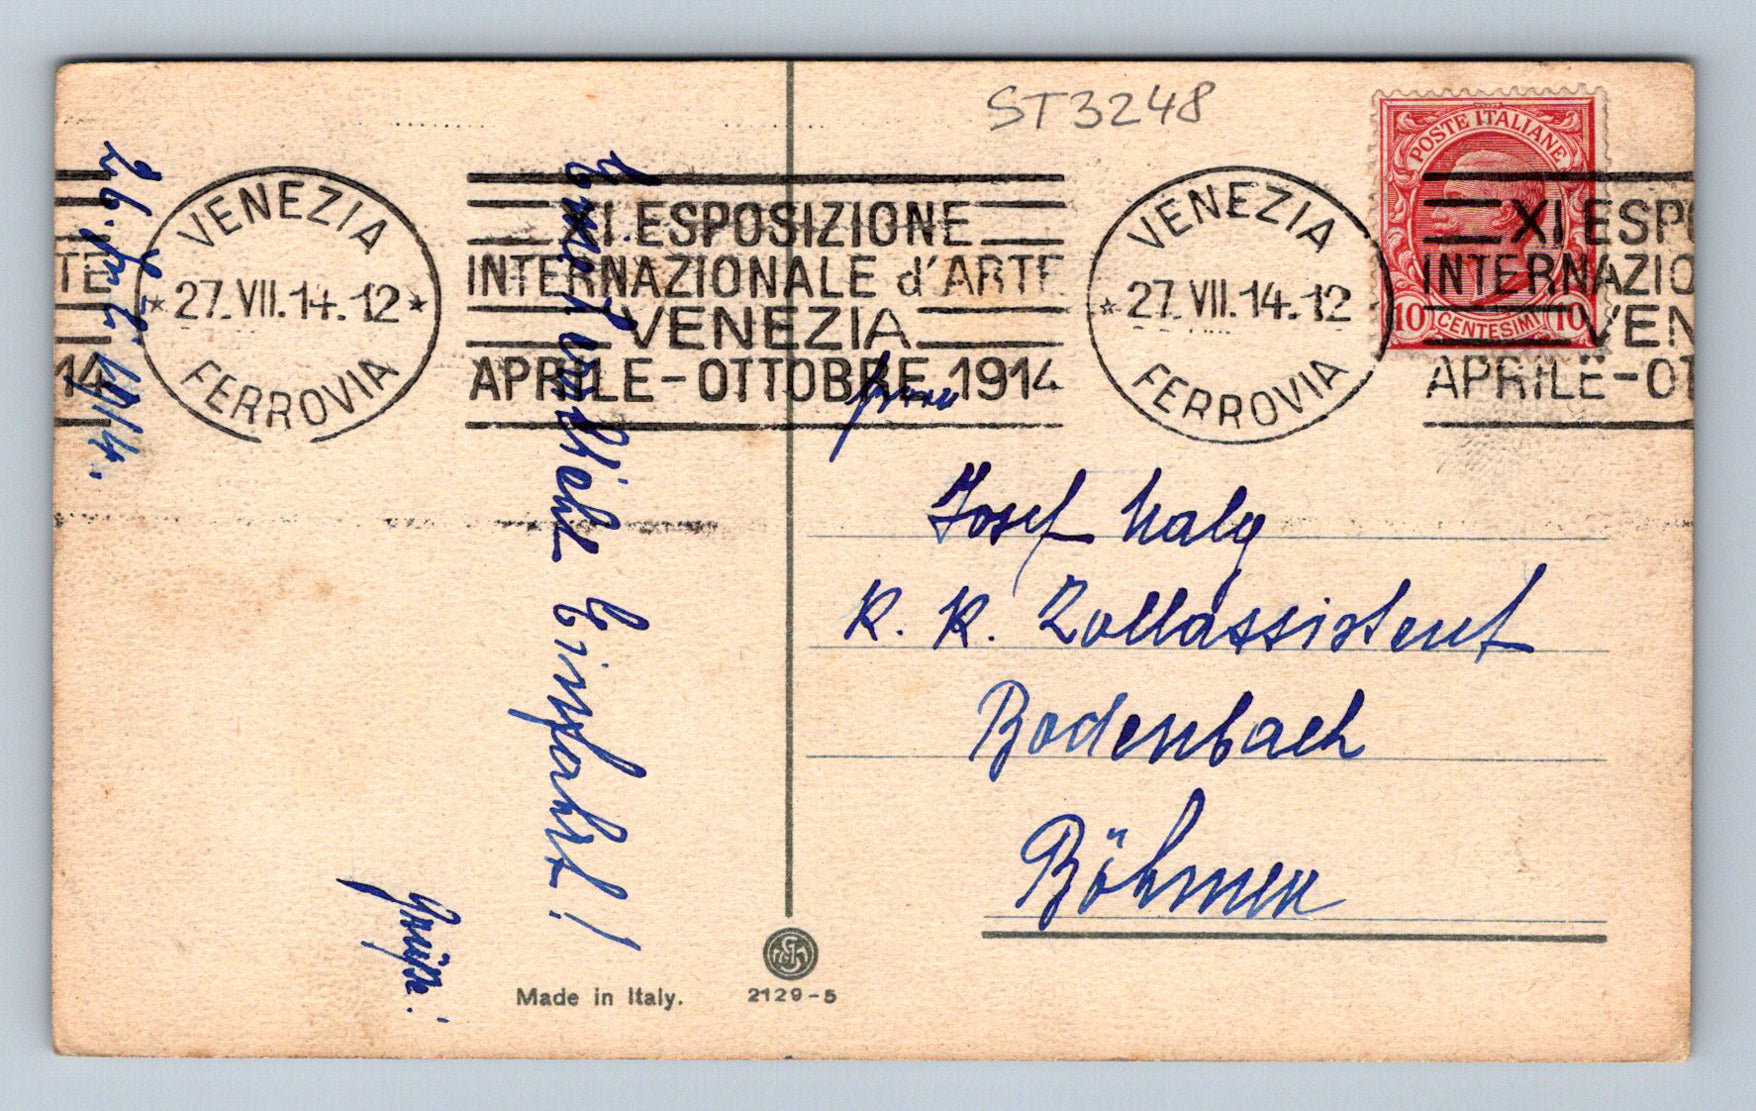 ST3248
POSTE ITALIANE
10 CENTESIMI 10
VENEZIA
27.VII.14.12
FERROVIA
XI. ESPOSIZIONE
INTERNAZIONALE d'ARTE
VENEZIA
APRILE-OTTOBRE 1914
VENEZIA
27.VII.14.12
FERROVIA
XI ESPO
INTERNAZIO
VEN
APRILE-OT
TE
14
26. Juli 1914.
Einfahrt!
Josef
K. K. Zollassistent
Bodenbach
Böhmen
Made in Italy.
2129-5